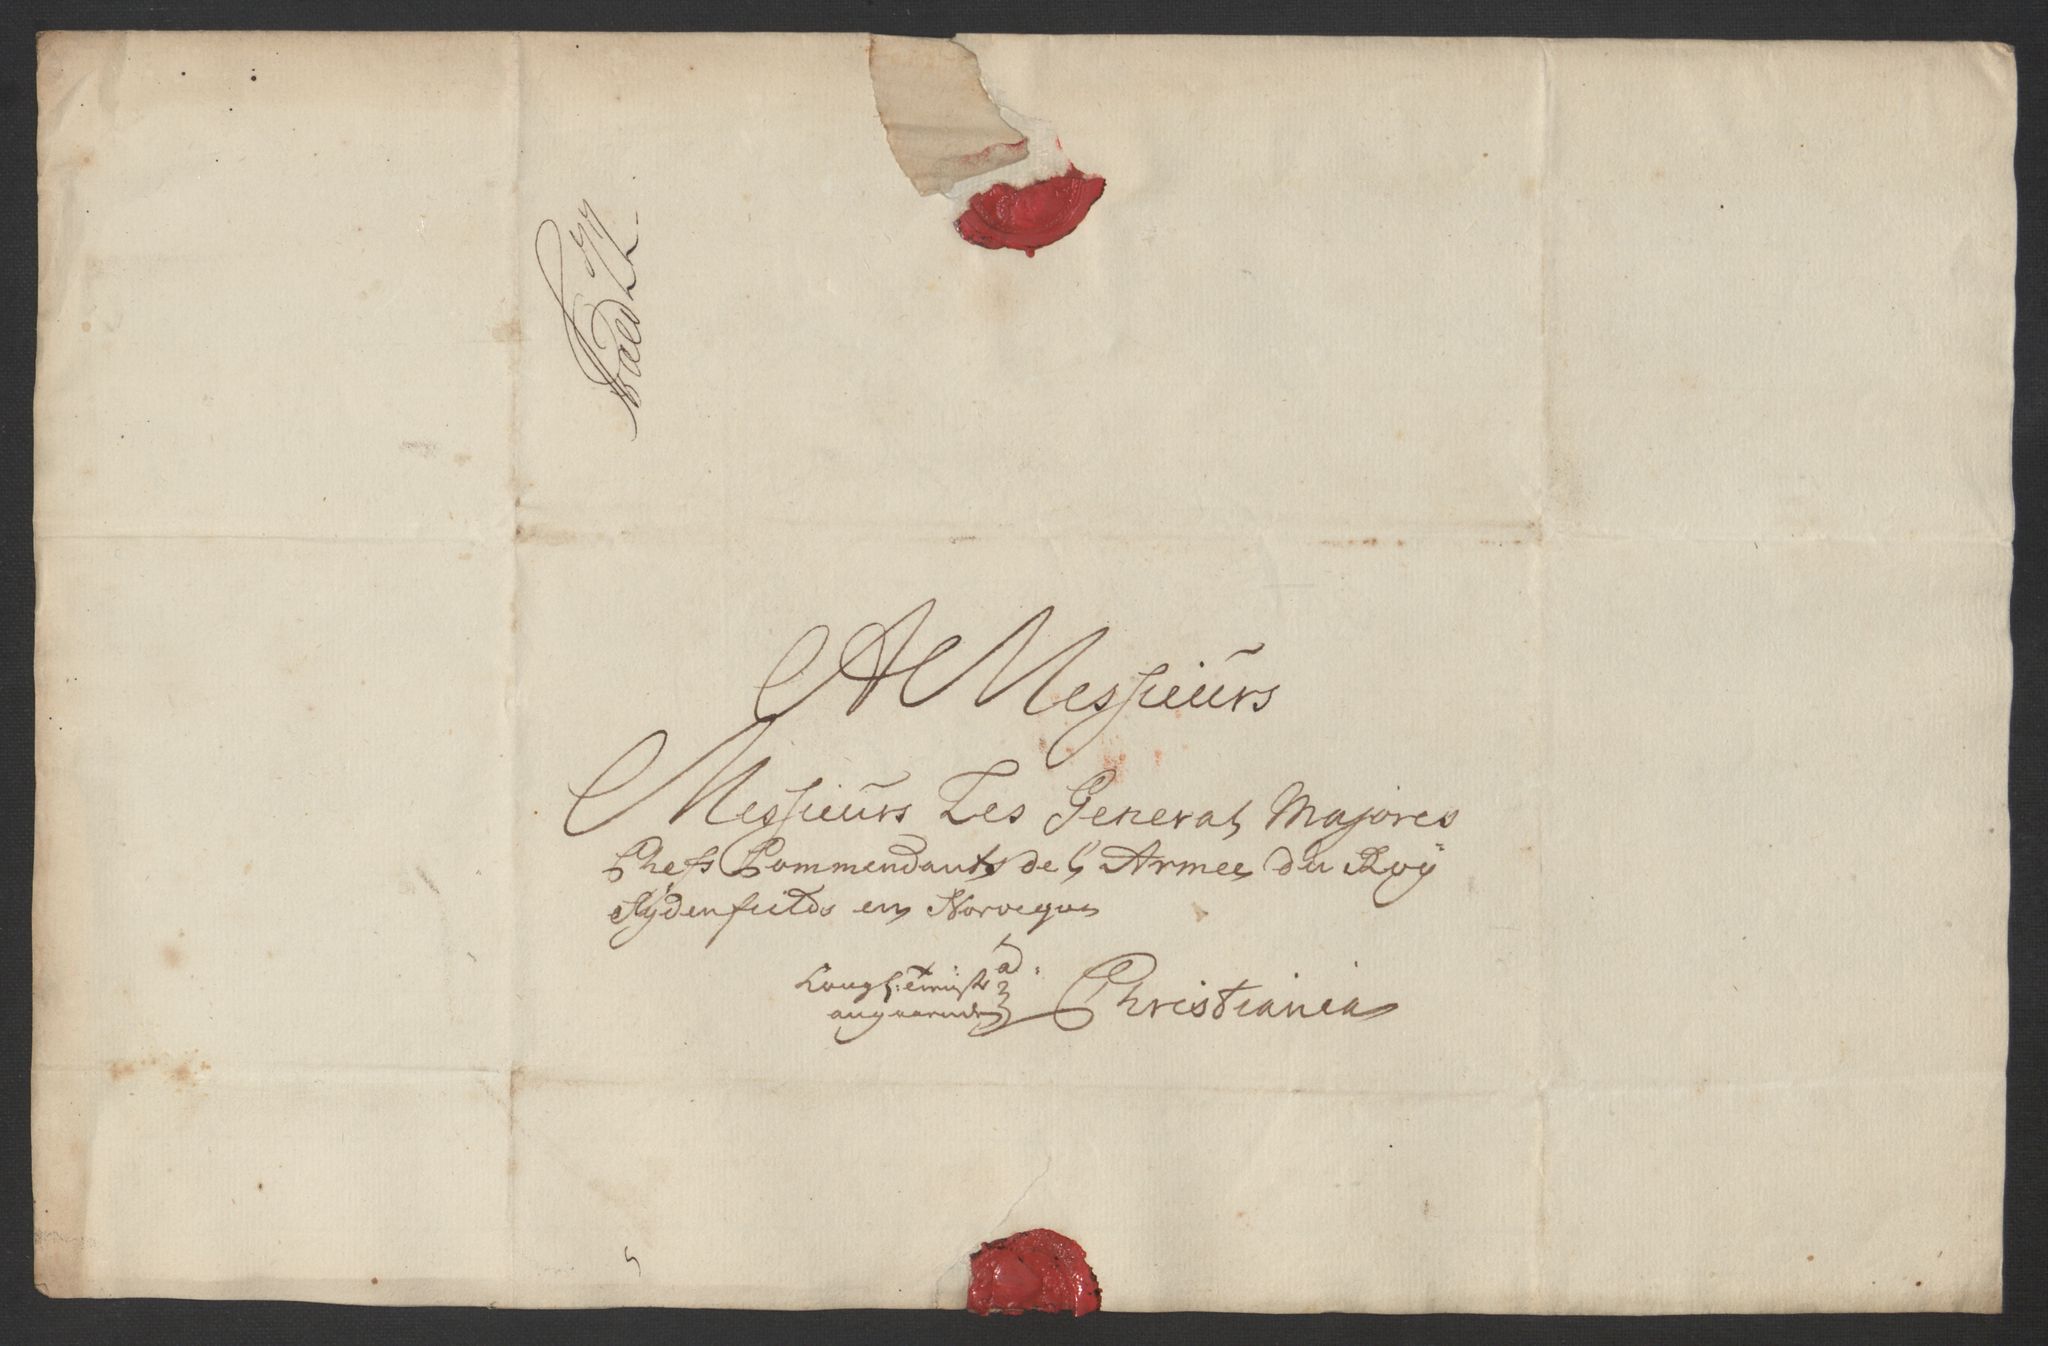 A Messieurs
Messieurs Les General Majores
Chefs Commendants de l'Armee du Roÿ
Sydenfields en Norvegue
Kongl: tieniste
angaaende
a
Christiania